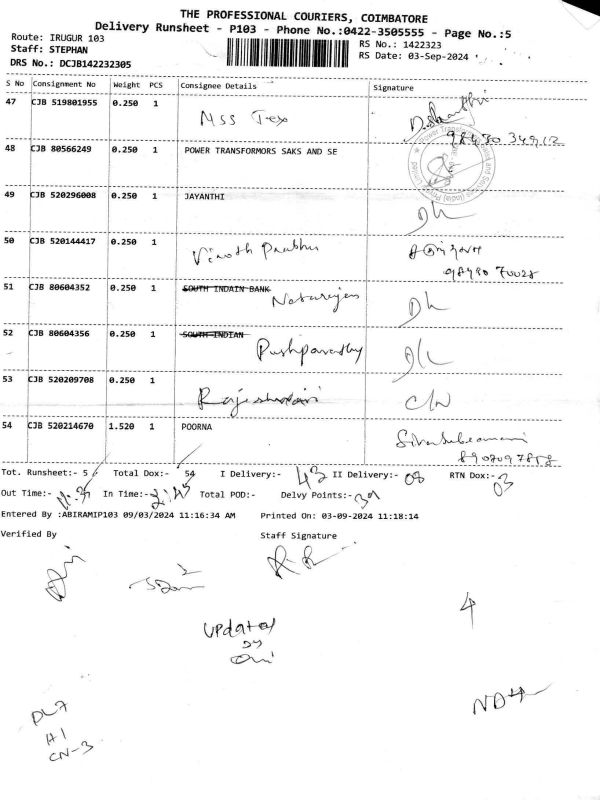 THE PROFESSIONAL COURIERS, COIMBATORE
Delivery Runsheet - P103 - Phone No.:0422-3505555 - Page No.:5
Route: IRUGUR 103
RS No.: 1422323
Staff: STEPHAN
RS Date: 03-Sep-2024
DRS No.: DCJB142232305
S No Consignment No Weight PCS Consignee Details Signature
47 CJB 519801955 0.250 1 MSS Tex
48 CJB 80566249 0.250 1 POWER TRANSFORMORS SAKS AND SE
49 CJB 520296008 0.250 1 JAYANTHI DL
50 CJB 520144417 0.250 1 Vinoth Prabhu
51 CJB 80604352 0.250 1 SOUTH INDAIN BANK Natarajan DL
52 CJB 80604356 0.250 1 SOUTH INDIAN Pushpavathy
53 CJB 520209708 0.250 1 Rajeshwari
54 CJB 520214670 1.520 1 POORNA
Tot. Runsheet:- 5 Total Dox:- 54 I Delivery:- 43 II Delivery:- 08 RTN Dox:- 03
Out Time:- In Time:- 2:45 Total POD:- Delvy Points:- 39
Entered By :ABIRAMIP103 09/03/2024 11:16:34 AM Printed On: 03-09-2024 11:18:14
Verified By Staff Signature
4
Updated
by
DL7
H1
CN-3
ND4